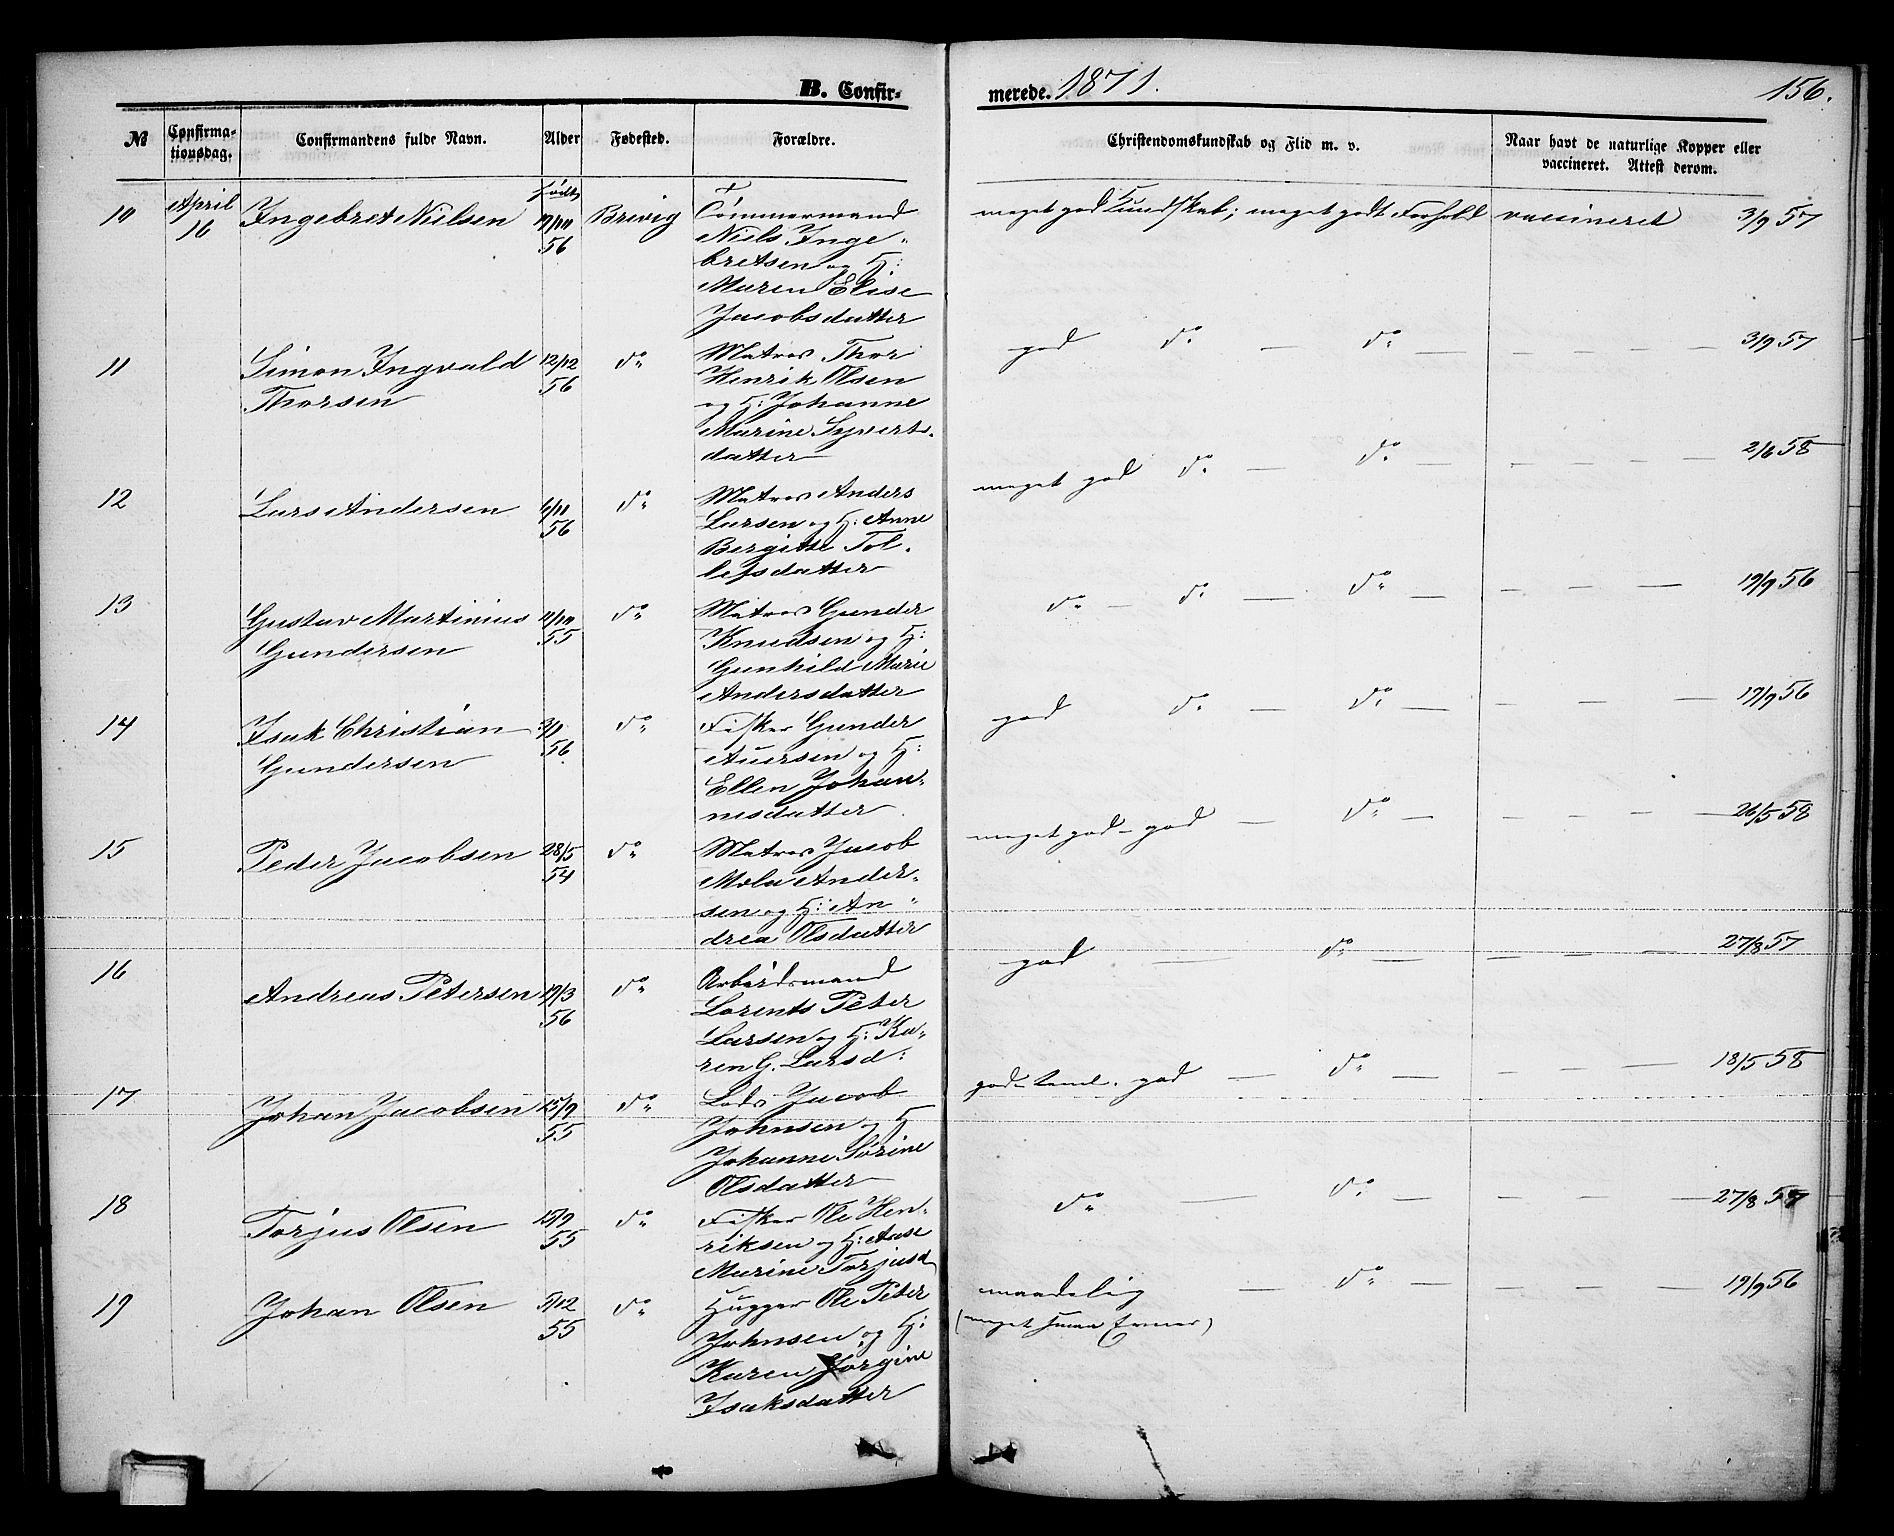 B. Confir-
merede. 1871.
156.
№
Confirma-
tionsdag.
Confirmandens fulde Navn.
Alder
Fødested.
Forældre.
Christendomskundskab og Flid m. v.
Naar havt de naturlige Kopper eller
vaccineret. Attest derom.
født
10 April Ingebret Nielsen Brevig Tømmermand meget god Kundskab; meget godt Forhold vaccineret 3/9 57
16 56 Niels Inge-
bretsen og H:
Maren Elise
Jacobsdatter
11 Simon Ingvald 12/12 do Matros Thor god do — do — 3/9 57
Thorsen 56 Henrik Olsen
og H: Johanne
Marine Syverts-
datter
12 Lars Andersen do Matros Anders meget god do — do — 2/6 58
56 Larsen og H: Anne
Bergitte Tol-
lefsdatter
13 Gustav Martinius do Matros Gunder do — do — do — 19/9 56
Gundersen 55 Knudsen og H:
Gunhild Marie
Andersdatter
14 Isak Christian do Fisker Gunder god do — do — 19/9 56
Gundersen 56 Auersen og H:
Ellen Johan-
nesdatter
15 Peder Jacobsen 28/5 do Matros Jacob meget god - god — do — 26/5 58
54 Mola Ander-
sen og H: An-
drea Olsdatter
16 Andreas Petersen 19/3 do Arbeidsmand god — do — 27/8 57
56 Lorents Peter
Larsen og H: Ka-
ren G. Larsd:
17 Johan Jacobsen 25/9 do Lods Jacob god - teml. god — do — 18/5 58
55 Johnsen og H
Johanne Sørine
Olsdatter
18 Torjus Olsen 15/9 do Fisker Ole Hen- do — do — 27/8 57
55 riksen og H: Aase
Marine Torjusd
19 Johan Olsen 5/12 do Hugger Ole Peter maadelig — do — 19/9 56
55 Johnsen og H: (meget smaa Evner)
Karen Jørgine
Isaksdatter